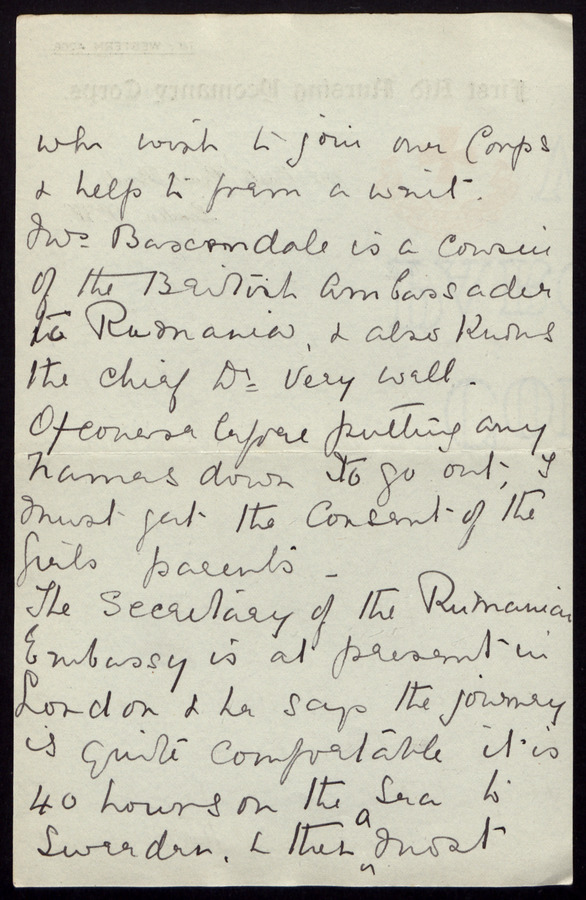 who wish to join our Corps
& help to form a unit.
Mrs Bascomdale is a cousin
of the British Ambassader
to Rumania, & also knows
the chief Dr very well.
Of course before putting any
names down to go out, I
must get the consent of the
girls parents -
The Secretary of the Rumanian
Embassy is at present in
London & he says the journey
is quite comfortable it is
40 hours on the Sea to
Sweeden, & then a most
First Aid Nursing Yeomanry Corps.